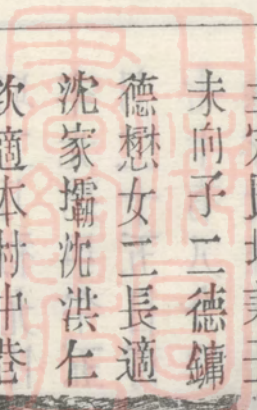 未向子二德鏞
德懋女二長適
沈家壩沈洪仁
次適本村中巷